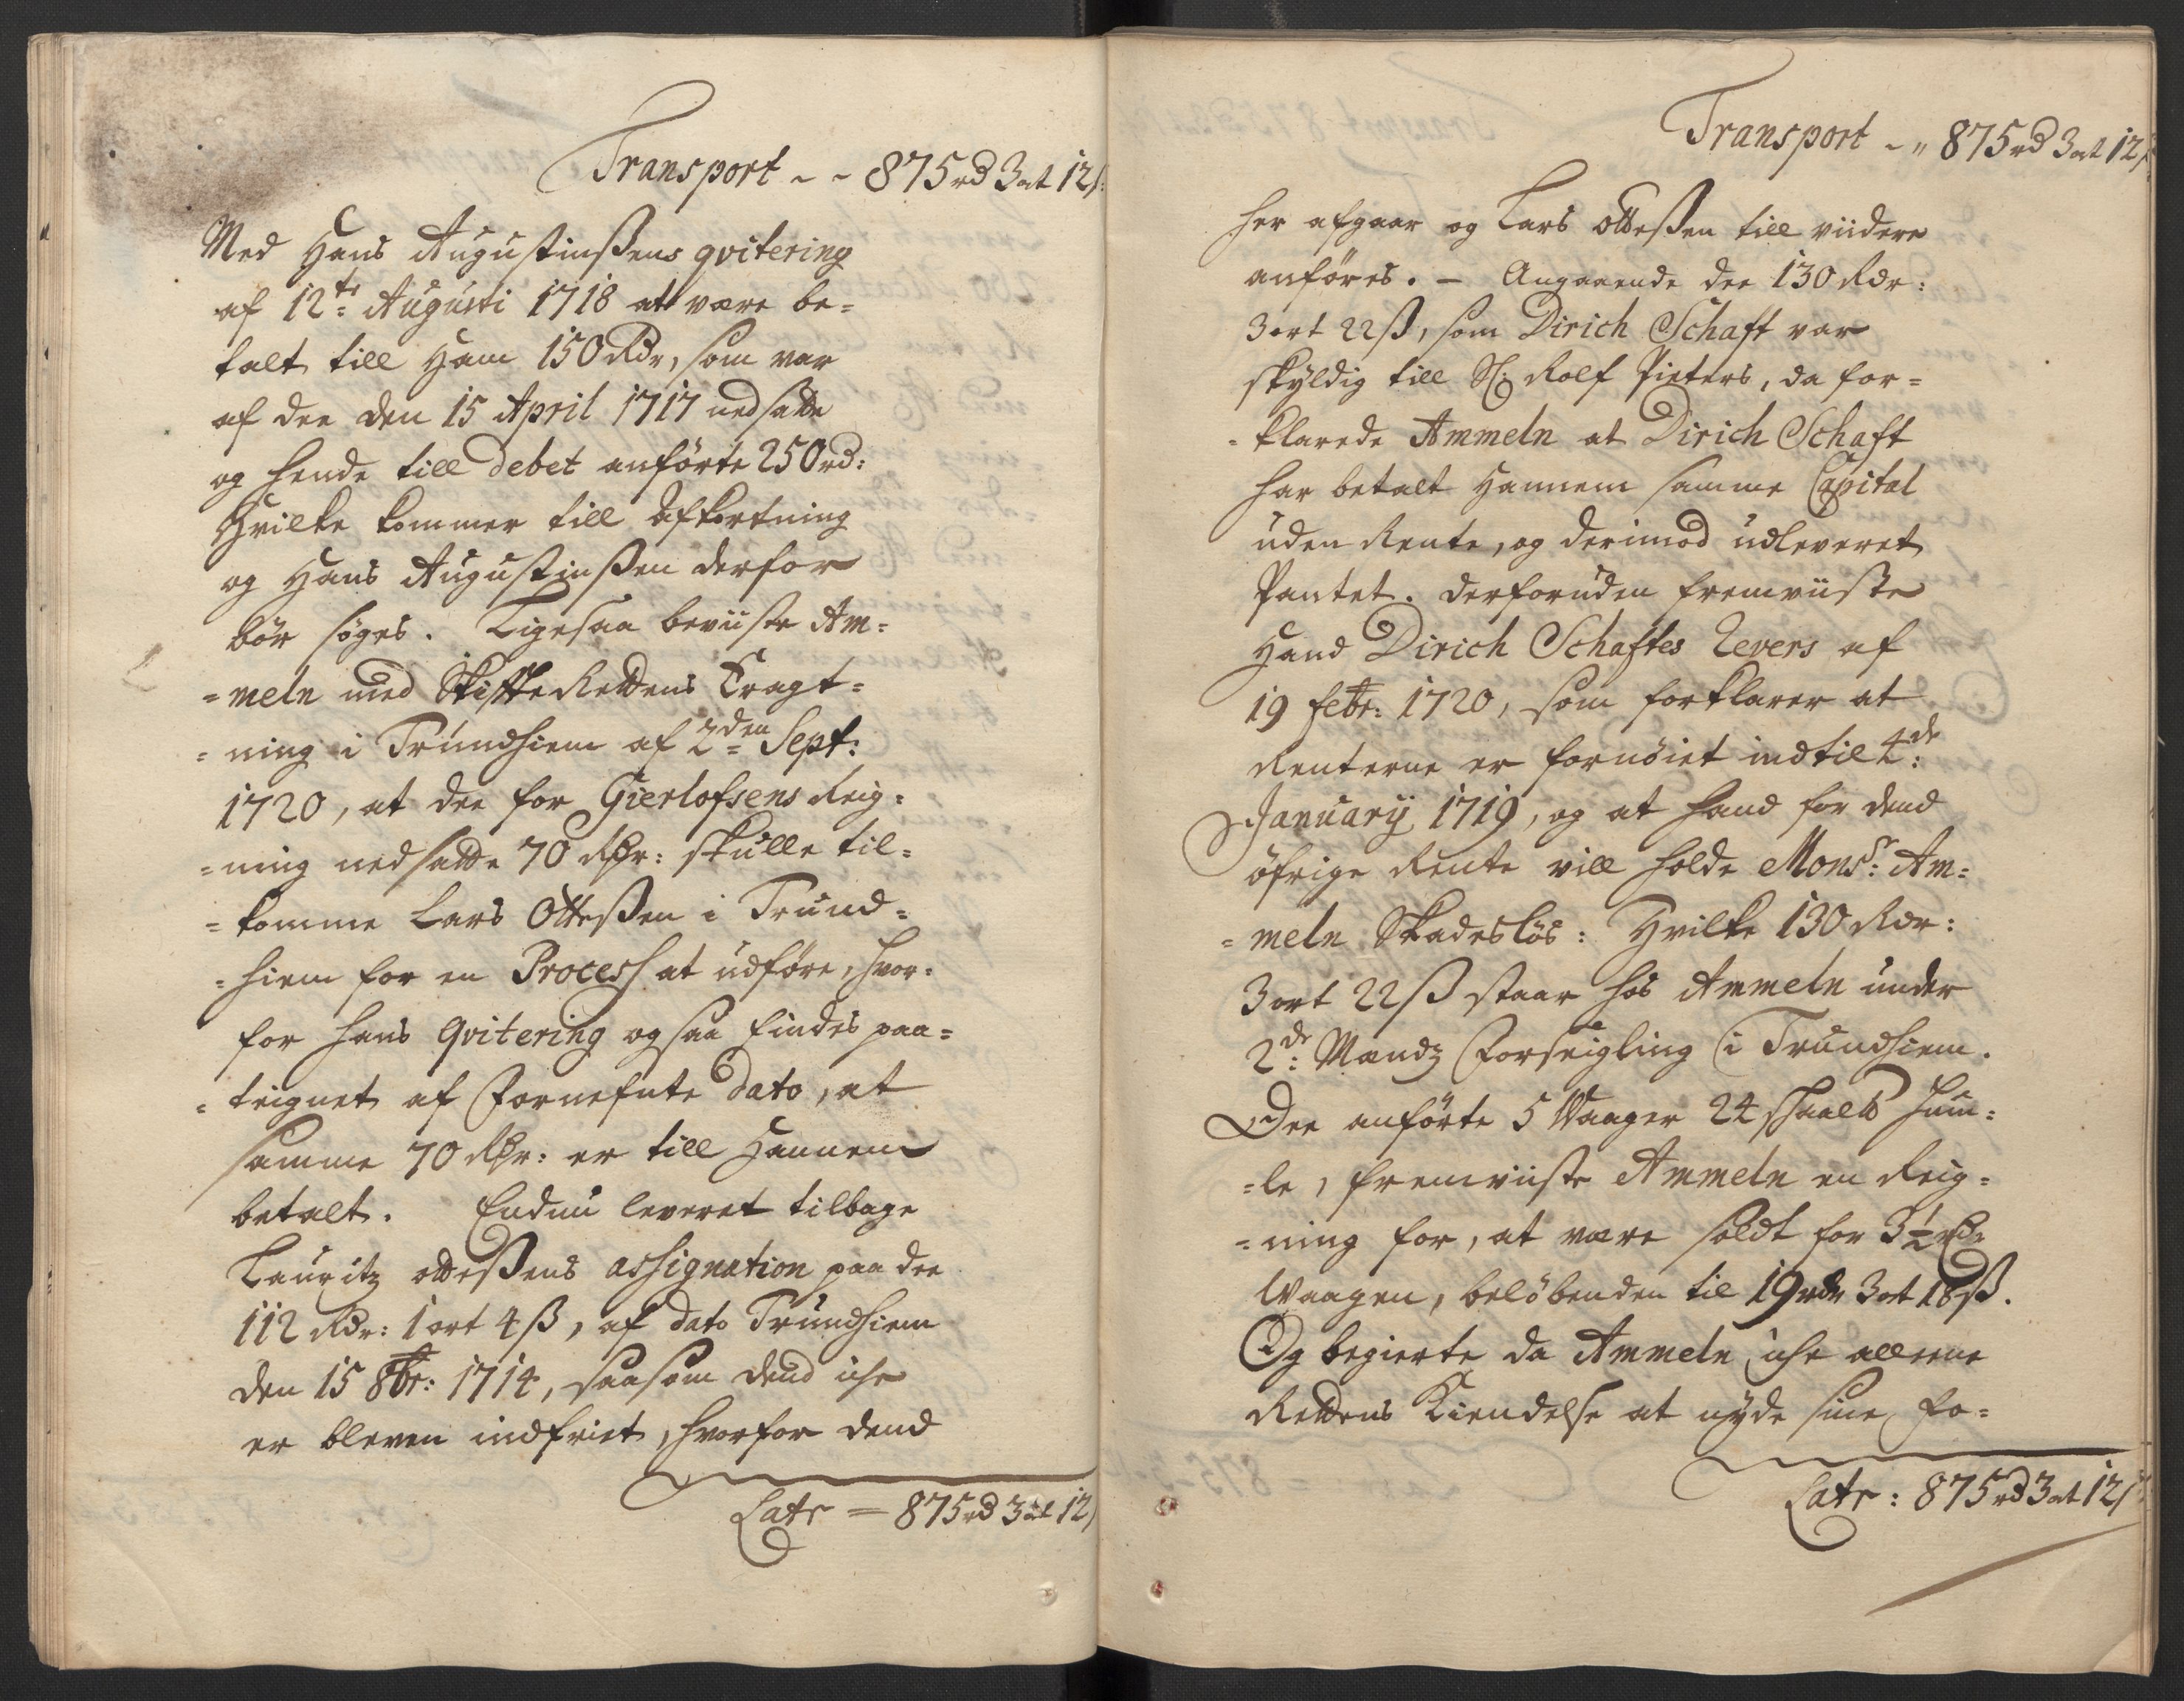 Transport ~ ~ 875 rd 3 ort 12 ß:
Med Hans Augustinßens qvitering
af 12te: Augusti 1718 at være be=
talt till Ham 150 Rdr, som var
af dee den 15 April 1717 nedsatte
og hende till debet anförte 250 rd:
Hvilke kommer till Afkortning
og Hans Augustinßen derfor
bör söges. Ligesaa beviiste Am=
=meln med SkifteRettens Tragt=
=ning i Trundhiem af 2den Sept:
1720, at dee for Gierlofsens Reig=
=ning nedsatte 70 Rdr: skulle til=
=komme Lars Otteßen i Trund=
=hiem for en Process at udföre, hvor=
for hans Qvitering ogsaa findes paa=
=teignet af Fornefnte dato, at
samme 70 Rdr: er till Hannem
betalt. Endnu leveret tilbage
Lauritz Otteßens assignation paa dee
112 Rdr: 1 ort 4 ß, af dato Trundhiem
den 15 8br: 1714, saasom dend iche
er bleven indfriet, hvorfor dend
Latr = 875 rd 3 ort 12
Transport ~ " 875 rd 3 ort 12 ß
her afgaar og Lars Otteßen till viidere
anföres. – Angaaende dee 130 Rdr:
3 ort 22 ß, som Dirich Schaft var
skyldig till Sl: Rolf Pieters, da for=
=klarede Ammeln at Dirich Schaft
har betalt Hannem samme Capital
uden Rente, og derimod udleveret
Pantet. Derforuden fremviiste
Hand Dirich Schaftes Revers af
19 febr: 1720, som forklarer at
Renterne er fornöiet indtil 4de:
January 1719, og at hand for dend
öfrige Rente vill holde Monsr: Am=
=meln Skadeslös: Hvilke 130 Rdr:
3 ort 22 ß staar hos Ammeln under
2de: Mandz Forseigling i Trundhiem.
Dee anförte 5 Waager 24 skaalb Hum=
=le, fremviiste Ammeln en Reig=
=ning for, at være soldt for 3½ rdr
Waagen, belöbenden til 19 rdr 3 ort 18 ß.
Og begierte da Ammeln iche alleene
Rettens Kiendelse at nyde sine fo=
Latr: 875 rd 3 ort 12 ß